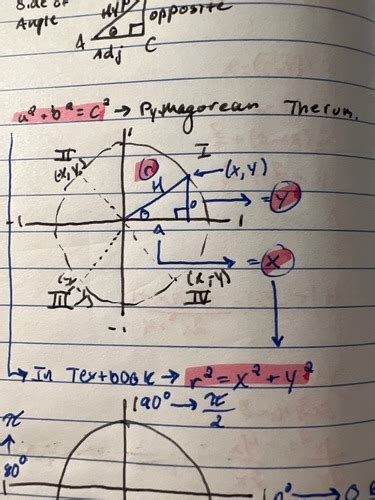 Side of
Angle
Hyp
opposite
A
θ
Adj
C
a² + b² = c² → Pythagorean Therum.
1
II
(-x, y)
r
I
(x, y)
H
= y
-1
θ
O
1
A
= x
III
(x, -y)
IV
-1
→ In Textbook → r² = x² + y²
90° → π/2
π
↑
180°